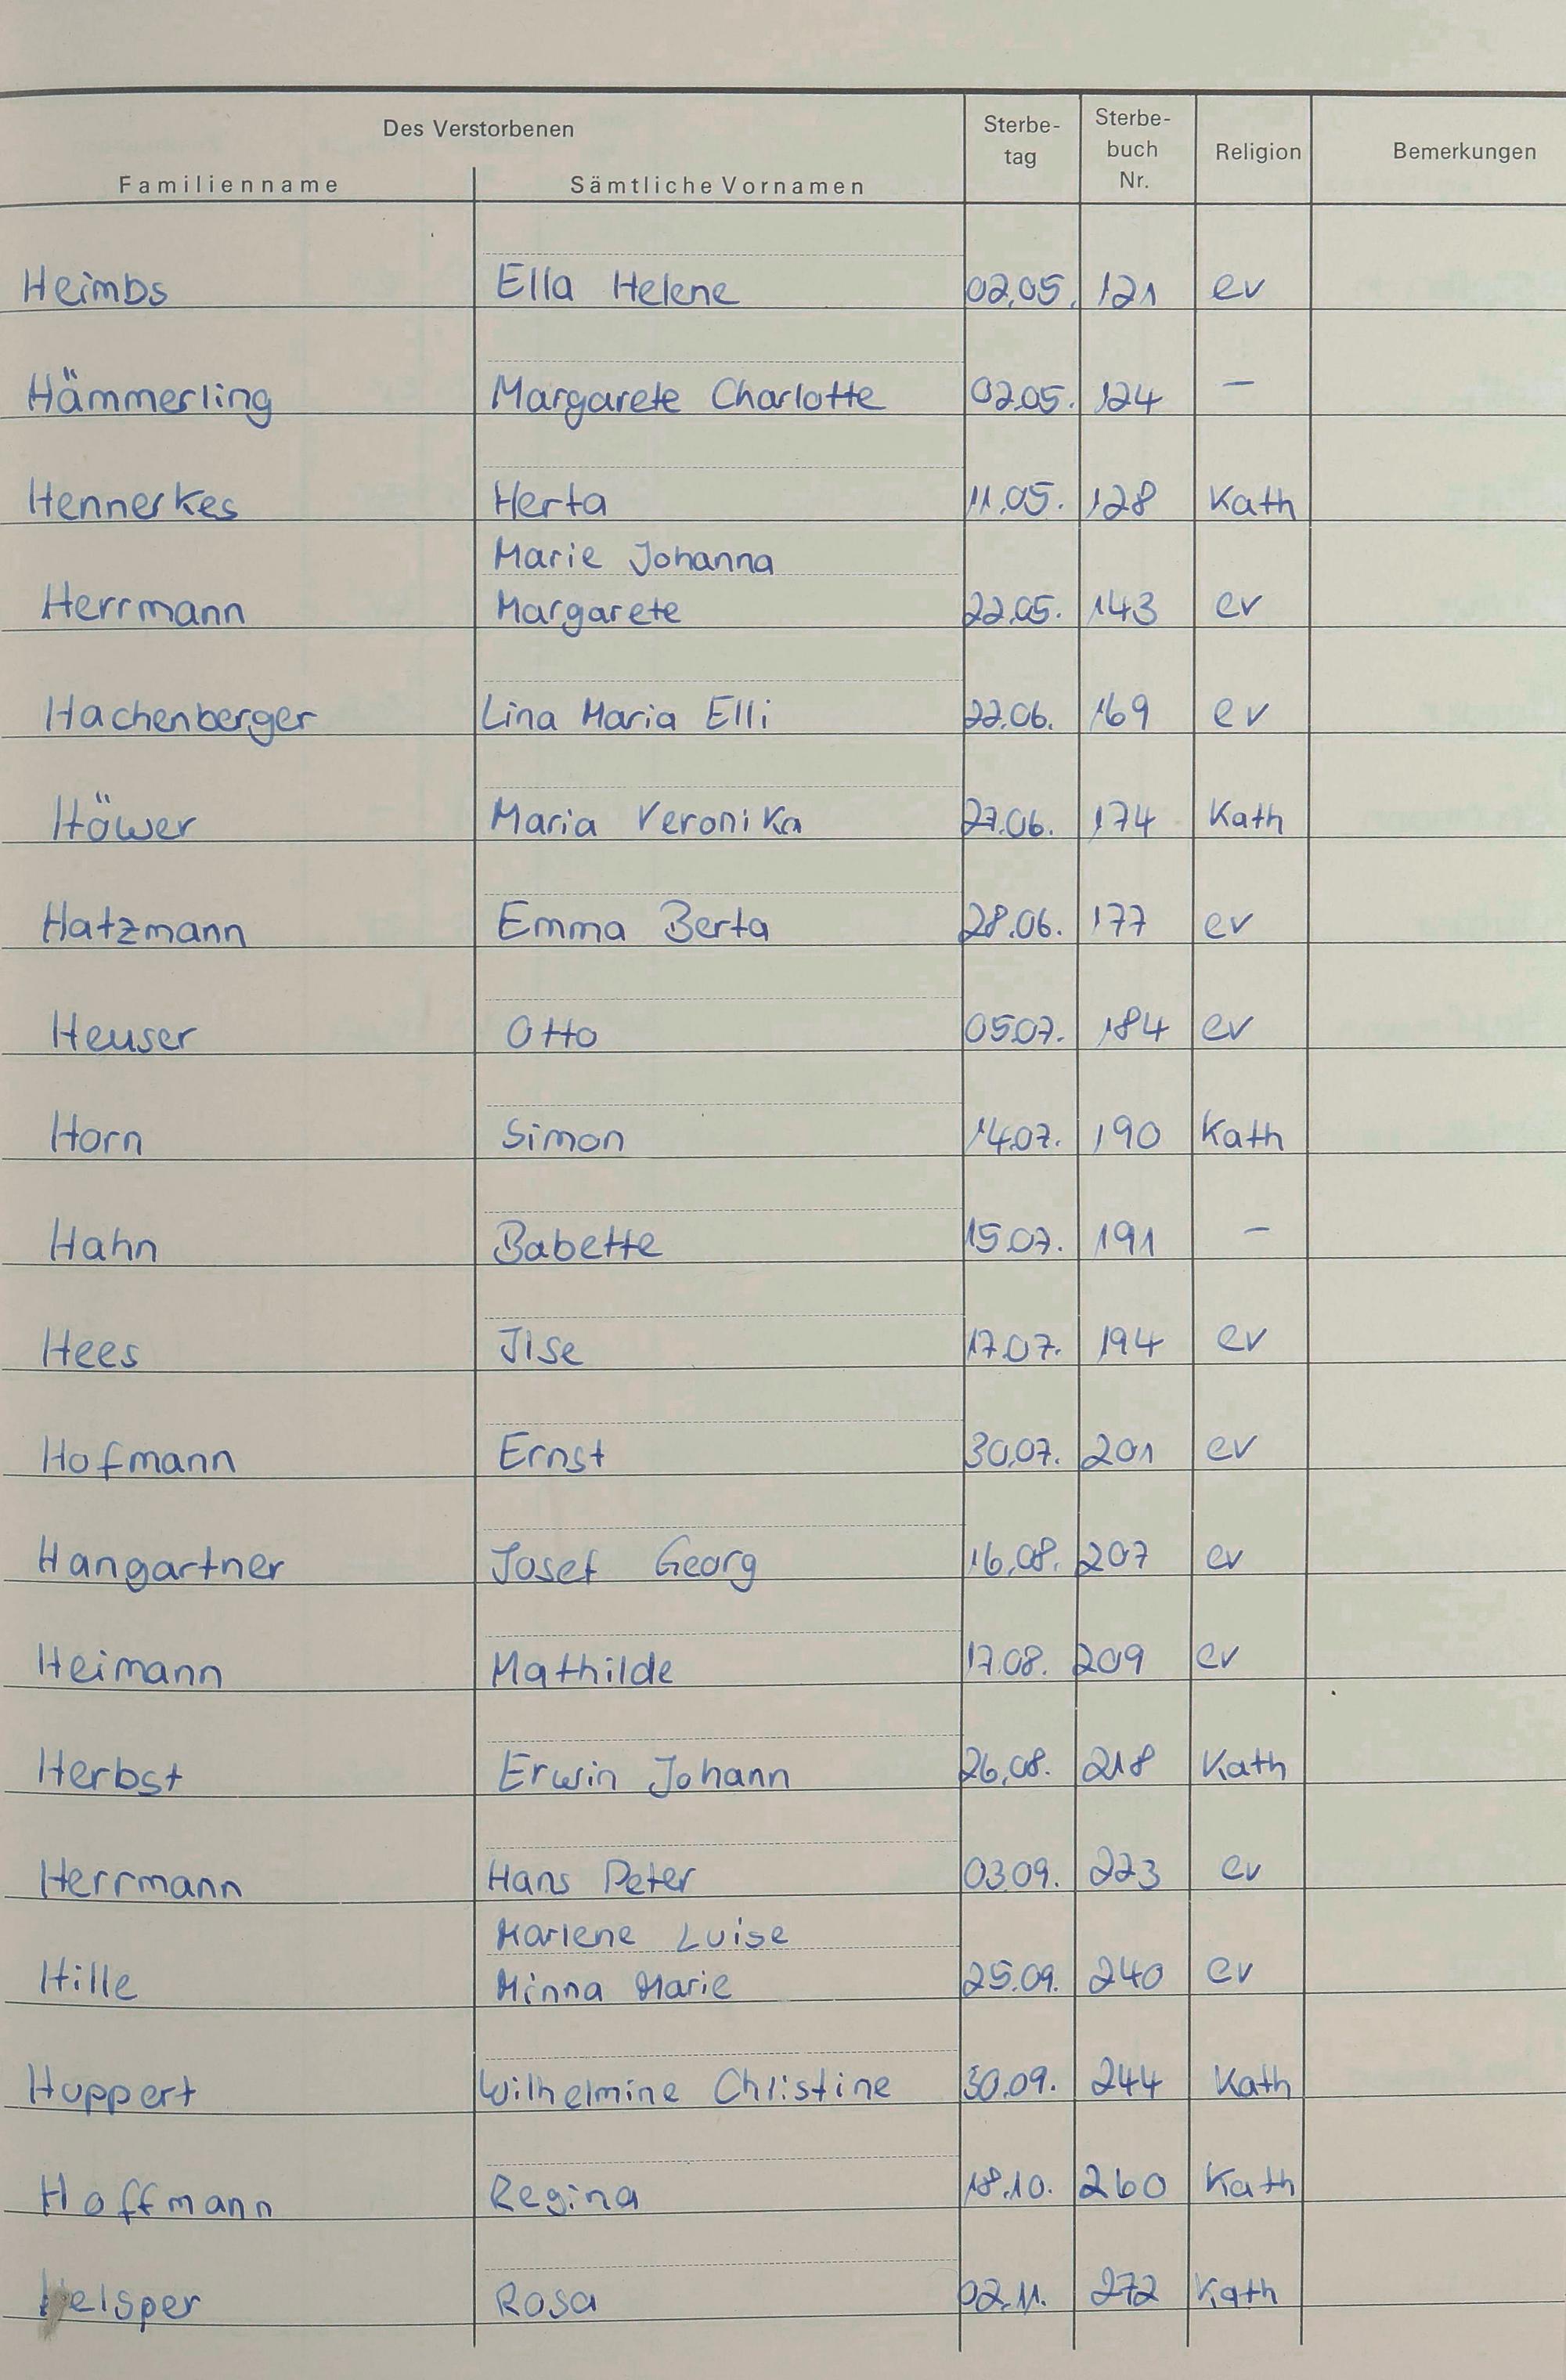 Des Verstorbenen
Familienname Sämtliche Vornamen Sterbe-tag Sterbe-buch Nr. Religion Bemerkungen
Heimbs Ella Helene 02.05. 121 ev
Hämmerling Margarete Charlotte 02.05. 124 —
Hennerkes Herta 11.05. 128 Kath
Marie Johanna
Herrmann Margarete 22.05. 143 ev
Hachenberger Lina Maria Elli 22.06. 169 ev
Höwer Maria Veronika 27.06. 174 Kath
Hatzmann Emma Berta 28.06. 177 ev
Heuser Otto 05.07. 184 ev
Horn Simon 14.07. 190 Kath
Hahn Babette 15.07. 191 —
Hees Jlse 17.07. 194 ev
Hofmann Ernst 30.07. 201 ev
Hangartner Josef Georg 16.08. 207 ev
Heimann Mathilde 17.08. 209 ev
Herbst Erwin Johann 26.08. 218 Kath
Herrmann Hans Peter 03.09. 223 ev
Marlene Luise
Hille Minna Marie 25.09. 240 ev
Huppert Wilhelmine Christine 30.09. 244 Kath
Hoffmann Regina 18.10. 260 Kath
Helsper Rosa 02.11. 272 Kath